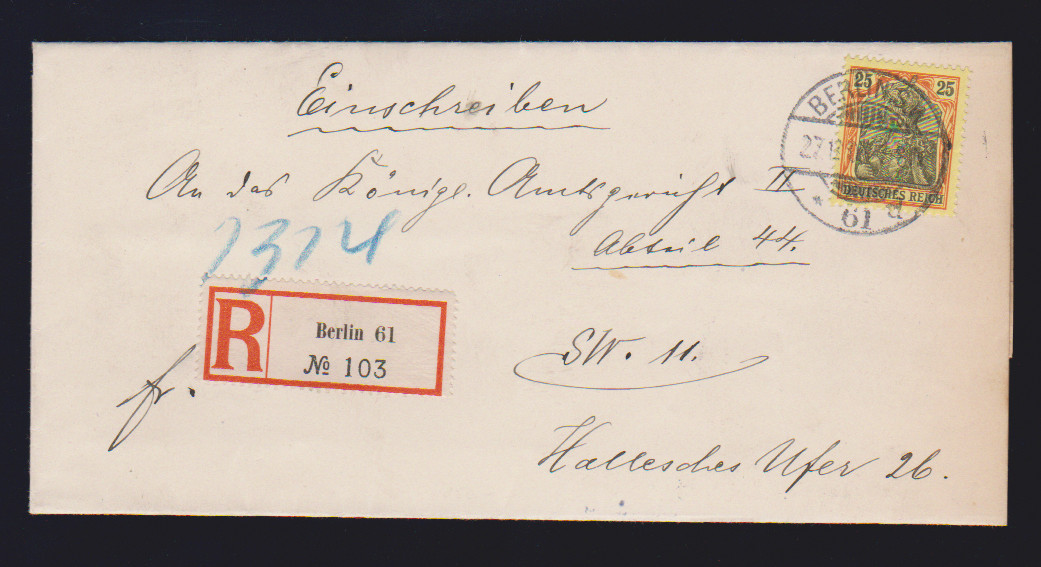 Einschreiben
25 25
BERLIN S.W.
27.12.
DEUTSCHES REICH
* 61 d
An das Königl. Amtsgericht II
1314
Abteil 44.
R Berlin 61
No 103
SW. 11.
fr.
Hallesches Ufer 26.